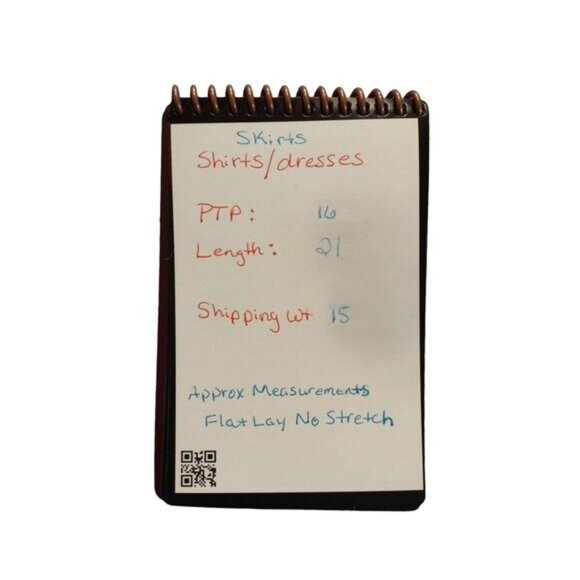 Skirts
Shirts/dresses
PTP: 16
Length: 21
Shipping wt 15
Approx Measurements
Flat Lay No Stretch